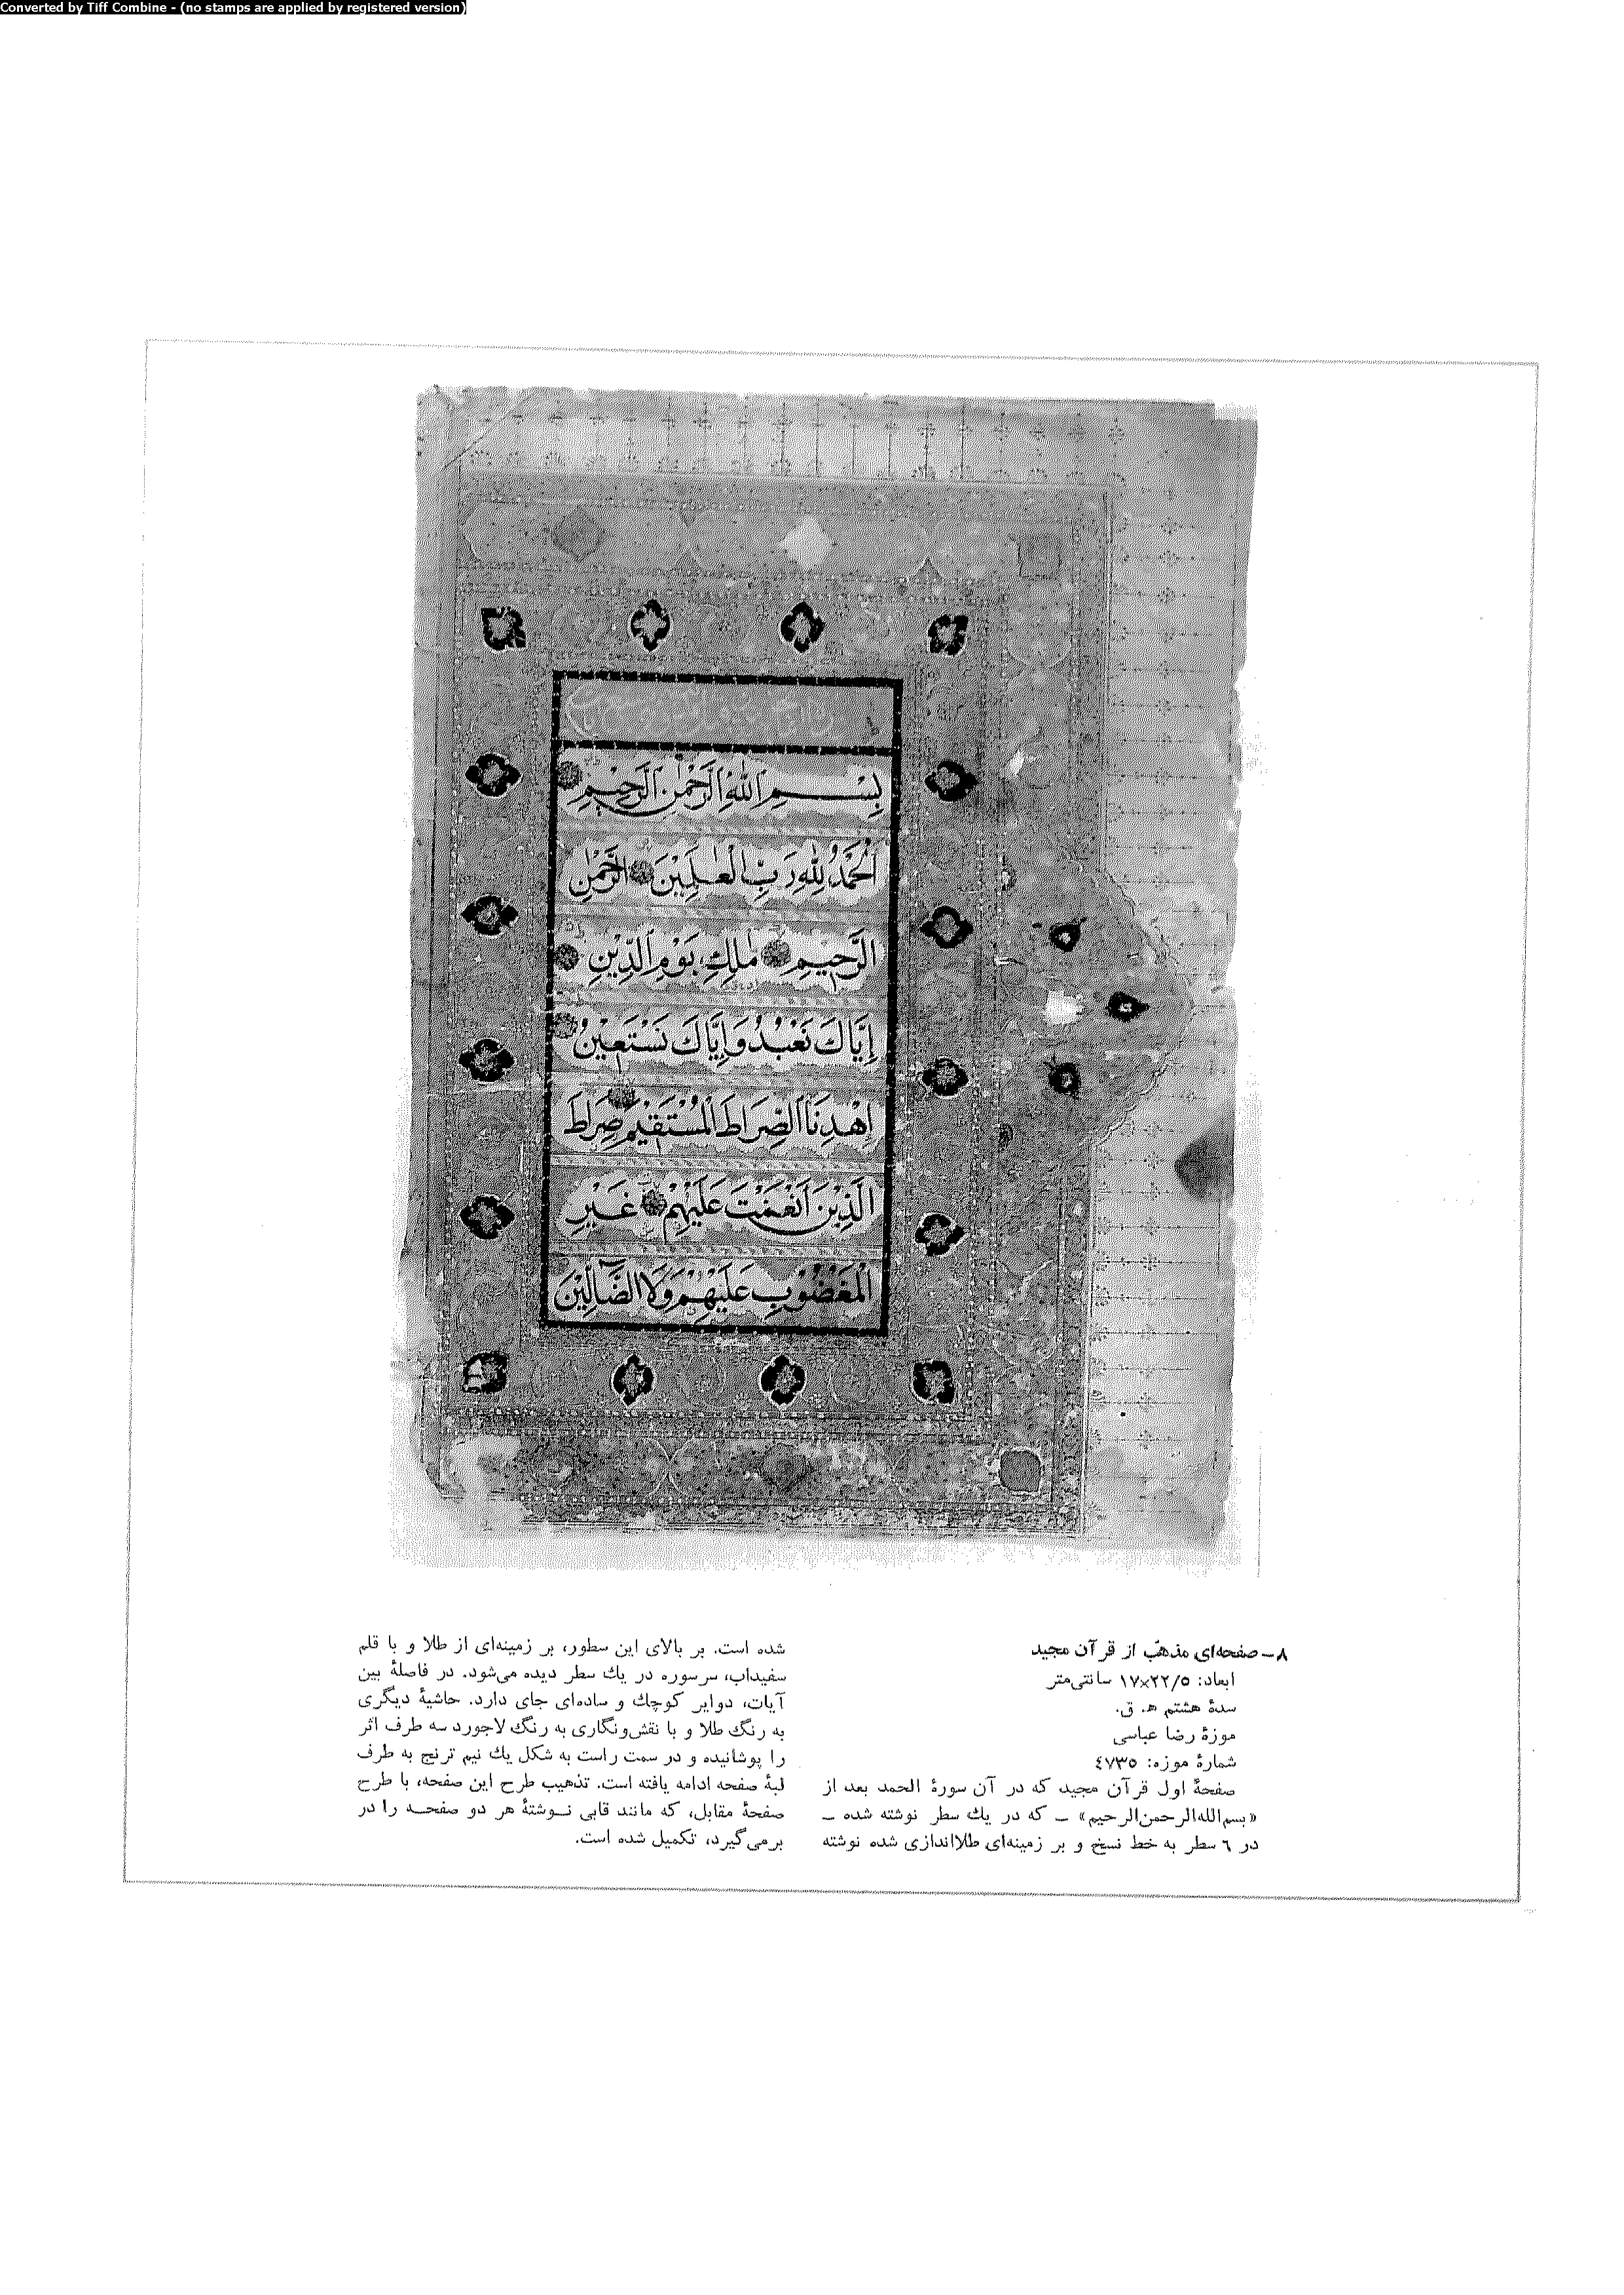 Converted by Tiff Combine - (no stamps are applied by registered version)
بِسْمِ اللهِ الرَّحْمٰنِ الرَّحِيْمِ
اَلْحَمْدُ لِلّٰهِ رَبِّ الْعٰلَمِيْنَ الرَّحْمٰنِ
الرَّحِيْمِ مٰلِكِ يَوْمِ الدِّيْنِ
اِيَّاكَ نَعْبُدُ وَاِيَّاكَ نَسْتَعِيْنُ
اِهْدِنَا الصِّرَاطَ الْمُسْتَقِيْمَ صِرَاطَ
الَّذِيْنَ اَنْعَمْتَ عَلَيْهِمْ غَيْرِ
الْمَغْضُوْبِ عَلَيْهِمْ وَلَا الضَّالِّيْنَ
۸ــ صفحه‌ای مذهّب از قرآن مجید
ابعاد: ۱۷×۲۲/۵ سانتی‌متر
سدهٔ هشتم ه‍. ق.
موزهٔ رضا عباسی
شمارهٔ موزه: ٤۷۳۵
صفحهٔ اول قرآن مجید که در آن سورهٔ الحمد بعد از
«بسم‌الله‌الرحمن‌الرحیم» ــ که در یك سطر نوشته شده ــ
در ٦ سطر به خط نسخ و بر زمینه‌ای طلااندازی شده نوشته
شده است. بر بالای این سطور، بر زمینه‌ای از طلا و با قلم
سفیداب، سرسوره در یك سطر دیده می‌شود. در فاصلهٔ بین
آیات، دوایر کوچك و ساده‌ای جای دارد. حاشیهٔ دیگری
به رنگ طلا و با نقش‌ونگاری به رنگ لاجورد سه طرف اثر
را پوشانیده و در سمت راست به شکل یك نیم ترنج به طرف
لبهٔ صفحه ادامه یافته است. تذهیب طرح این صفحه، با طرح
صفحهٔ مقابل، که مانند قابی نـوشتهٔ هر دو صفحـه را در
برمی‌گیرد، تکمیل شده است.